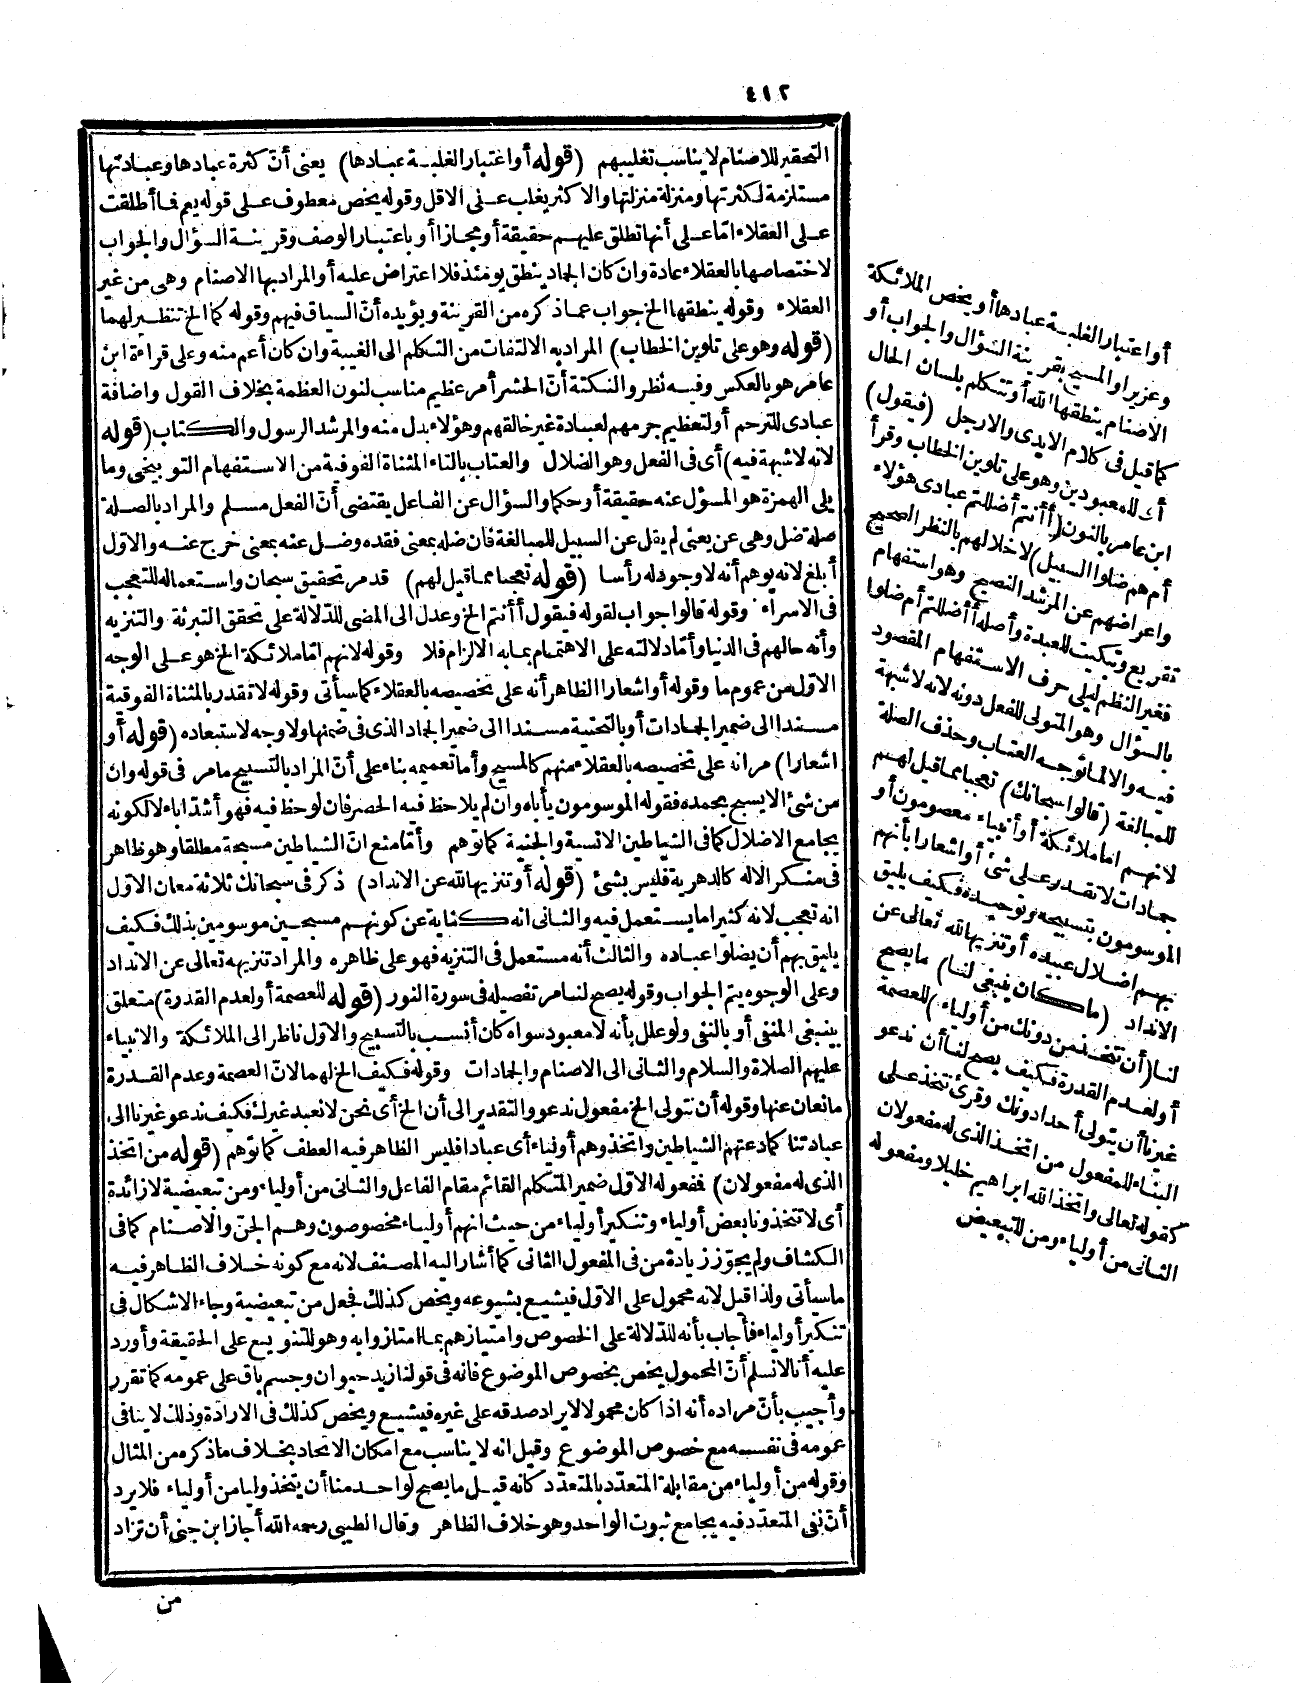 ٤١٢
التحقير للاصنام لا يناسب تغليبهم (قوله أو اعتبار الغلبة عبادها) يعنى أنّ كثرة عبادها وعبادتها
مستلزمة لكثرتها ومنزلة منزلتها والاكثر يغلب على الاقل وقوله يخص معطوف على قوله يعم فما أطلقت
على العقلاء امّا على أنها تطلق عليهم حقيقة أو مجازا أو باعتبار الوصف وقرينة السؤال والجواب
لاختصاصها بالعقلاء عادة وان كان الجماد ينطق يومئذ فلا اعتراض عليه أو المراد بها الاصنام وهى من غير
العقلاء وقوله ينطقها الخ جواب عما ذكره من القرينة ويؤيده أنّ السياق فيهم وقوله كما الخ تنظير لهما
(قوله وهو على تلوين الخطاب) المراد به الالتفات من التكلم الى الغيبة وان كان أعم منه وعلى قراءة ابن
عامر هو بالعكس وفيه نظر والنكتة أنّ الحشر أمر عظيم مناسب لنون العظمة بخلاف القول واضافة
عبادى للترحم أو لتعظيم جرمهم لعبادة غير خالقهم وهؤلاء بدل منه والمرشد الرسول والكتاب (قوله
لانه لا شبهة فيه) أى فى الفعل وهو الضلال والعتاب بالتاء المثناة الفوقية من الاستفهام التوبيخى وما
يلى الهمزة هو المسؤل عنه حقيقة أو حكما والسؤال عن الفاعل يقتضى أنّ الفعل مسلم والمراد بالصلة
صلة ضل وهى عن يعنى لم يقل عن السبيل للمبالغة فان ضله بمعنى فقده وضل عنه بمعنى خرج عنه والاول
أبلغ لانه يوهم أنه لا وجود له رأسا (قوله تعجبا مما قيل لهم) قد مر تحقيق سبحان واستعماله للتعجب
فى الاسراء وقوله قالوا جواب لقوله فيقول أأنتم الخ وعدل الى المضى للدلالة على تحقق التبرئة والتنزيه
وأنه حالهم فى الدنيا وأمّا دلالته على الاهتمام بما به الالزام فلا وقوله لانهم امّا ملائكة الخ هو على الوجه
الاول من عموم ما وقوله أو اشعارا الظاهر أنه على تخصيصه بالعقلاء كما سيأتى وقوله لا تقدر بالمثناة الفوقية
مسندا الى ضمير الجمادات أو بالتحتية مسندا الى ضمير الجماد الذى فى ضمنها ولا وجه لاستبعاده (قوله أو
اشعارا) مر انه على تخصيصه بالعقلاء منهم كالمسيح وأما تعميمه بناء على أنّ المراد بالتسبيح ما مر فى قوله وان
من شئ الا يسبح بحمده فقوله الموسومون يأباه وان لم يلاحظ فيه الحصر فان لوحظ فيه فهو أشد اباء لا لكونه
يجامع الاضلال كما فى الشياطين الانسية والجنية كما توهم وأمّا منع انّ الشياطين مسبحة مطلقا وهو ظاهر
فى منكر الاله كالدهرية فليس بشئ (قوله أو تنزيها لله عن الانداد) ذكر فى سبحانك ثلاثة معان الاول
انه تعجب لانه كثيرا ما يستعمل فيه والثانى انه كناية عن كونهم مسبحين موسومين بذلك فكيف
يليق بهم أن يضلوا عباده والثالث أنه مستعمل فى التنزيه فهو على ظاهره والمراد تنزيهه تعالى عن الانداد
وعلى الوجوه يتم الجواب وقوله يصح لنا مر تفصيله فى سورة النور (قوله للعصمة أو لعدم القدرة) متعلق
بينبغى المنفى أو بالنفى ولو علل بأنه لا معبود سواه كان أنسب بالتسبيح والاول ناظر الى الملائكة والانبياء
عليهم الصلاة والسلام والثانى الى الاصنام والجمادات وقوله فكيف الخ لهما لانّ العصمة وعدم القدرة
مانعان عنها وقوله أن نتولى الخ مفعول ندعو والتقدير الى أن الخ أى نحن لا نعبد غيرك فكيف ندعو غيرنا الى
عبادتنا كما دعتهم الشياطين واتخذوهم أولياء أى عبادا فليس الظاهر فيه العطف كما توهم (قوله من اتخذ
الذى له مفعولان) فمفعوله الاول ضمير المتكلم القائم مقام الفاعل والثانى من أولياء ومن تبعيضية لا زائدة
أى لا تتخذونا بعض أولياء وتنكير أولياء من حيث انهم أولياء مخصوصون وهم الجن والاصنام كما فى
الكشاف ولم يجوّز زيادة من فى المفعول الثانى كما أشار اليه المصنف لانه مع كونه خلاف الظاهر فيه
ما سيأتى ولذا قيل لانه محمول على الاول فيشيع بشيوعه ويخص كذلك فجعل من تبعيضية وجاء الاشكال فى
تنكير أولياء فأجاب بأنه للدلالة على الخصوص وامتيازهم بما امتازوا به وهو للتنويع على الحقيقة وأورد
عليه أنا لا نسلم أنّ المحمول يخص بخصوص الموضوع فانه فى قولنا زيد حيوان وجسم باق على عمومه كما تقرر
وأجيب بأنّ مراده أنه اذا كان محمولا لا يراد صدقه على غيره فيشيع ويخص كذلك فى الارادة وذلك لا ينافى
عمومه فى نفسه مع خصوص الموضوع وقيل انه لا يناسب مع امكان الاتحاد بخلاف ما ذكره من المثال
وقوله من أولياء من مقابلة المتعدّد بالمتعدّد كانه قيل ما يصح لواحد منا أن يتخذ وليا من أولياء فلا يرد
أنّ نفى المتعدّد فيه يجامع ثبوت الواحد وهو خلاف الظاهر وقال الطيبى رحمه الله أجاز ابن جنى أن تزاد
من
أو اعتبار الغلبة عبادها أو يخص الملائكة
وعزيرا والمسيح بقرينة السؤال والجواب أو
الاصنام ينطقها الله أو تتكلم بلسان الحال
كما قيل فى كلام الايدى والارجل (فيقول)
أى للمعبودين وهو على تلوين الخطاب وقرأ
ابن عامر بالنون (أأنتم أضللتم عبادى هؤلاء
أم هم ضلوا السبيل) لاخلالهم بالنظر الصحيح
واعراضهم عن المرشد النصيح وهو استفهام
تقريع وتبكيت للعبدة وأصله أأضللتم أم ضلوا
فغير النظم ليلى حرف الاستفهام المقصود
بالسؤال وهو المتولى للفعل دونه لانه لا شبهة
فيه والا لما توجه العتاب وحذف الصلة
للمبالغة (قالوا سبحانك) تعجبا مما قيل لهم
لانهم اما ملائكة أو أنبياء معصومون أو
جمادات لا تقدر على شئ أو اشعارا بأنهم
الموسومون بتسبيحه وتوحيده فكيف يليق
بهم اضلال عبيده أو تنزيها لله تعالى عن
الانداد (ما كان ينبغى لنا) ما يصح
لنا (أن نتخذ من دونك من أولياء) للعصمة
أو لعدم القدرة فكيف يصح لنا أن ندعو
غيرنا أن يتولى أحدا دونك وقرئ نتخذ على
البناء للمفعول من اتخذ الذى له مفعولان
كقوله تعالى واتخذ الله ابراهيم خليلا ومفعوله
الثانى من أولياء ومن للتبعيض